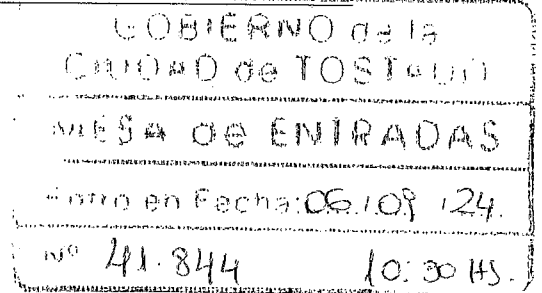 GOBIERNO de la
CIUDAD de TOSTADO
MESA de ENTRADAS
Entro en Fecha: 06/09/24.
Nº 41.844 10:30 HS.